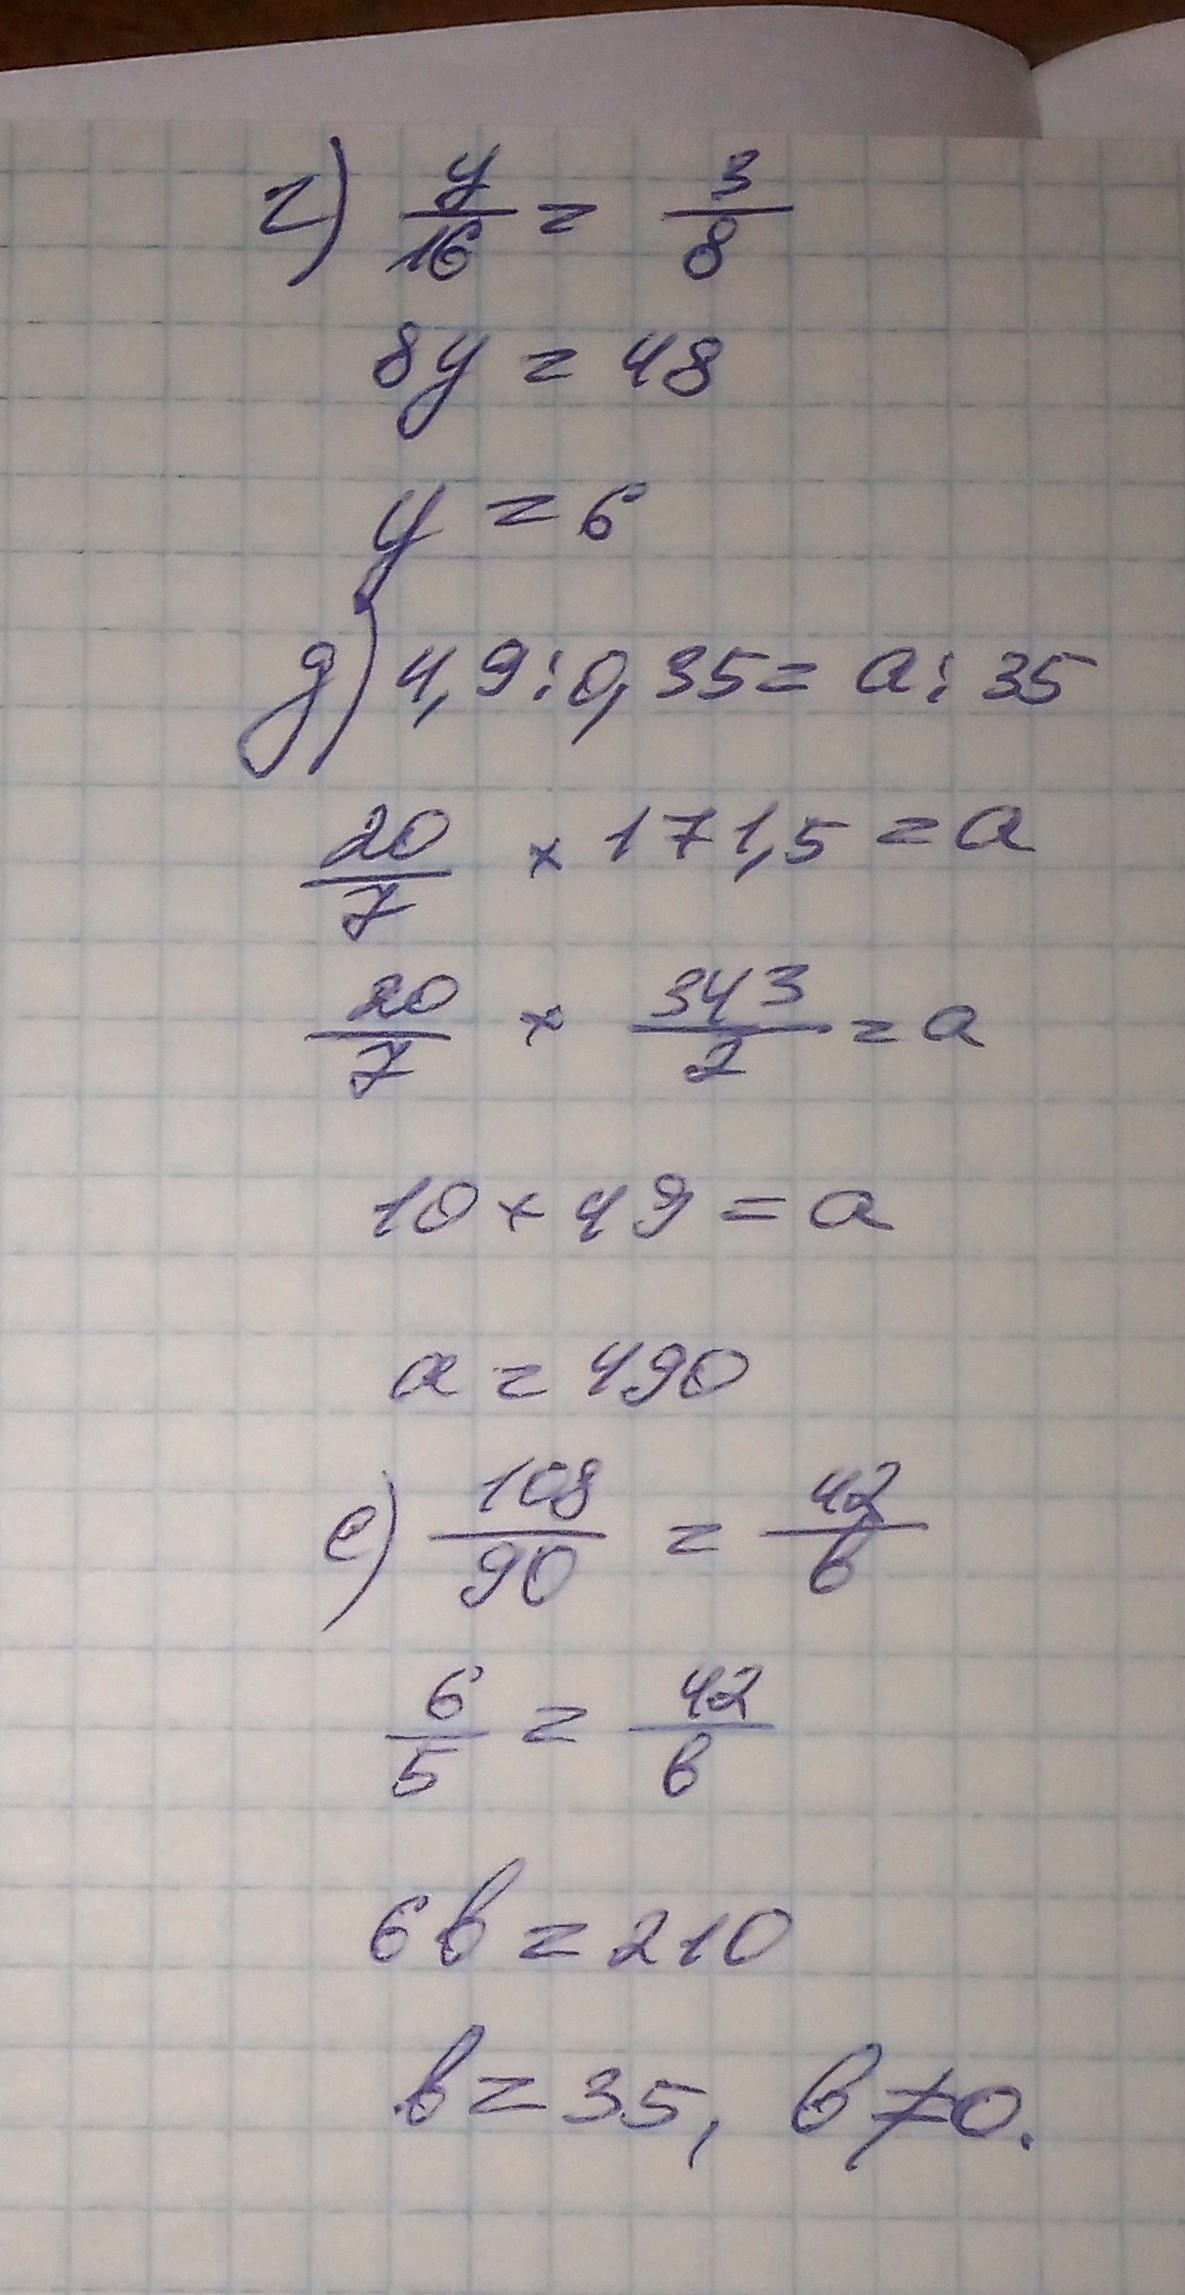 г) y/16 = 3/8
8y = 48
y = 6
д) 4,9:0,35 = a:35
20/7 × 171,5 = a
20/7 × 343/2 = a
10 × 49 = a
a = 490
е) 108/90 = 42/b
6/5 = 42/b
6b = 210
b = 35, b ≠ 0.